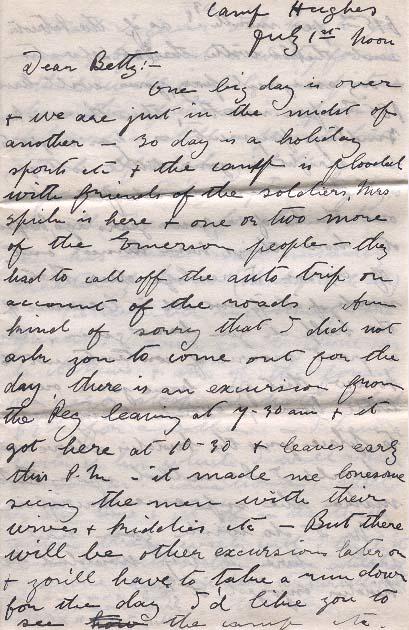 Camp Hughes
July 1st noon
Dear Betty:-
One big day is over
+ we are just in the midst of
another - 30 day is a holiday
sports etc + the camp is flooded
with friends of the soldiers, Mrs
is here + one or two more
of the Emerson people - they
had to call off the auto trip on
account of the roads. Am
kind of sorry that I did not
ask you to come out for the
day, there is an excursion from
the Peg leaving at 7-30 am + it
got here at 10-30 + leaves early
this P.M. - it made me lonesome
seeing the men with their
wives + kiddies etc - But there
will be other excursions later on
+ you'll have to take a run down
for the day I'd like you to
see how the camp etc.